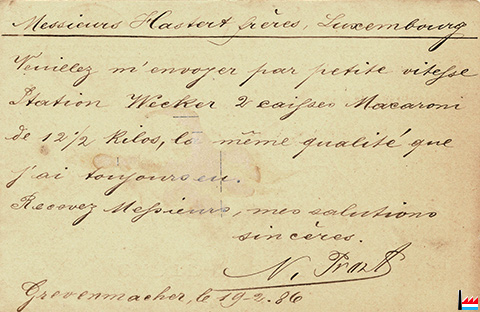 Messieurs Hastert frères, Luxembourg
Veuillez m'envoyer par petite vitesse
Station Wecker 2 caisses Macaroni
de 12 1/2 kilos, la même qualité que
j'ai toujours eu.
Recevez Messieurs, mes salutions
sincères.
N. Prost
Grevenmacher, le 19-2.86